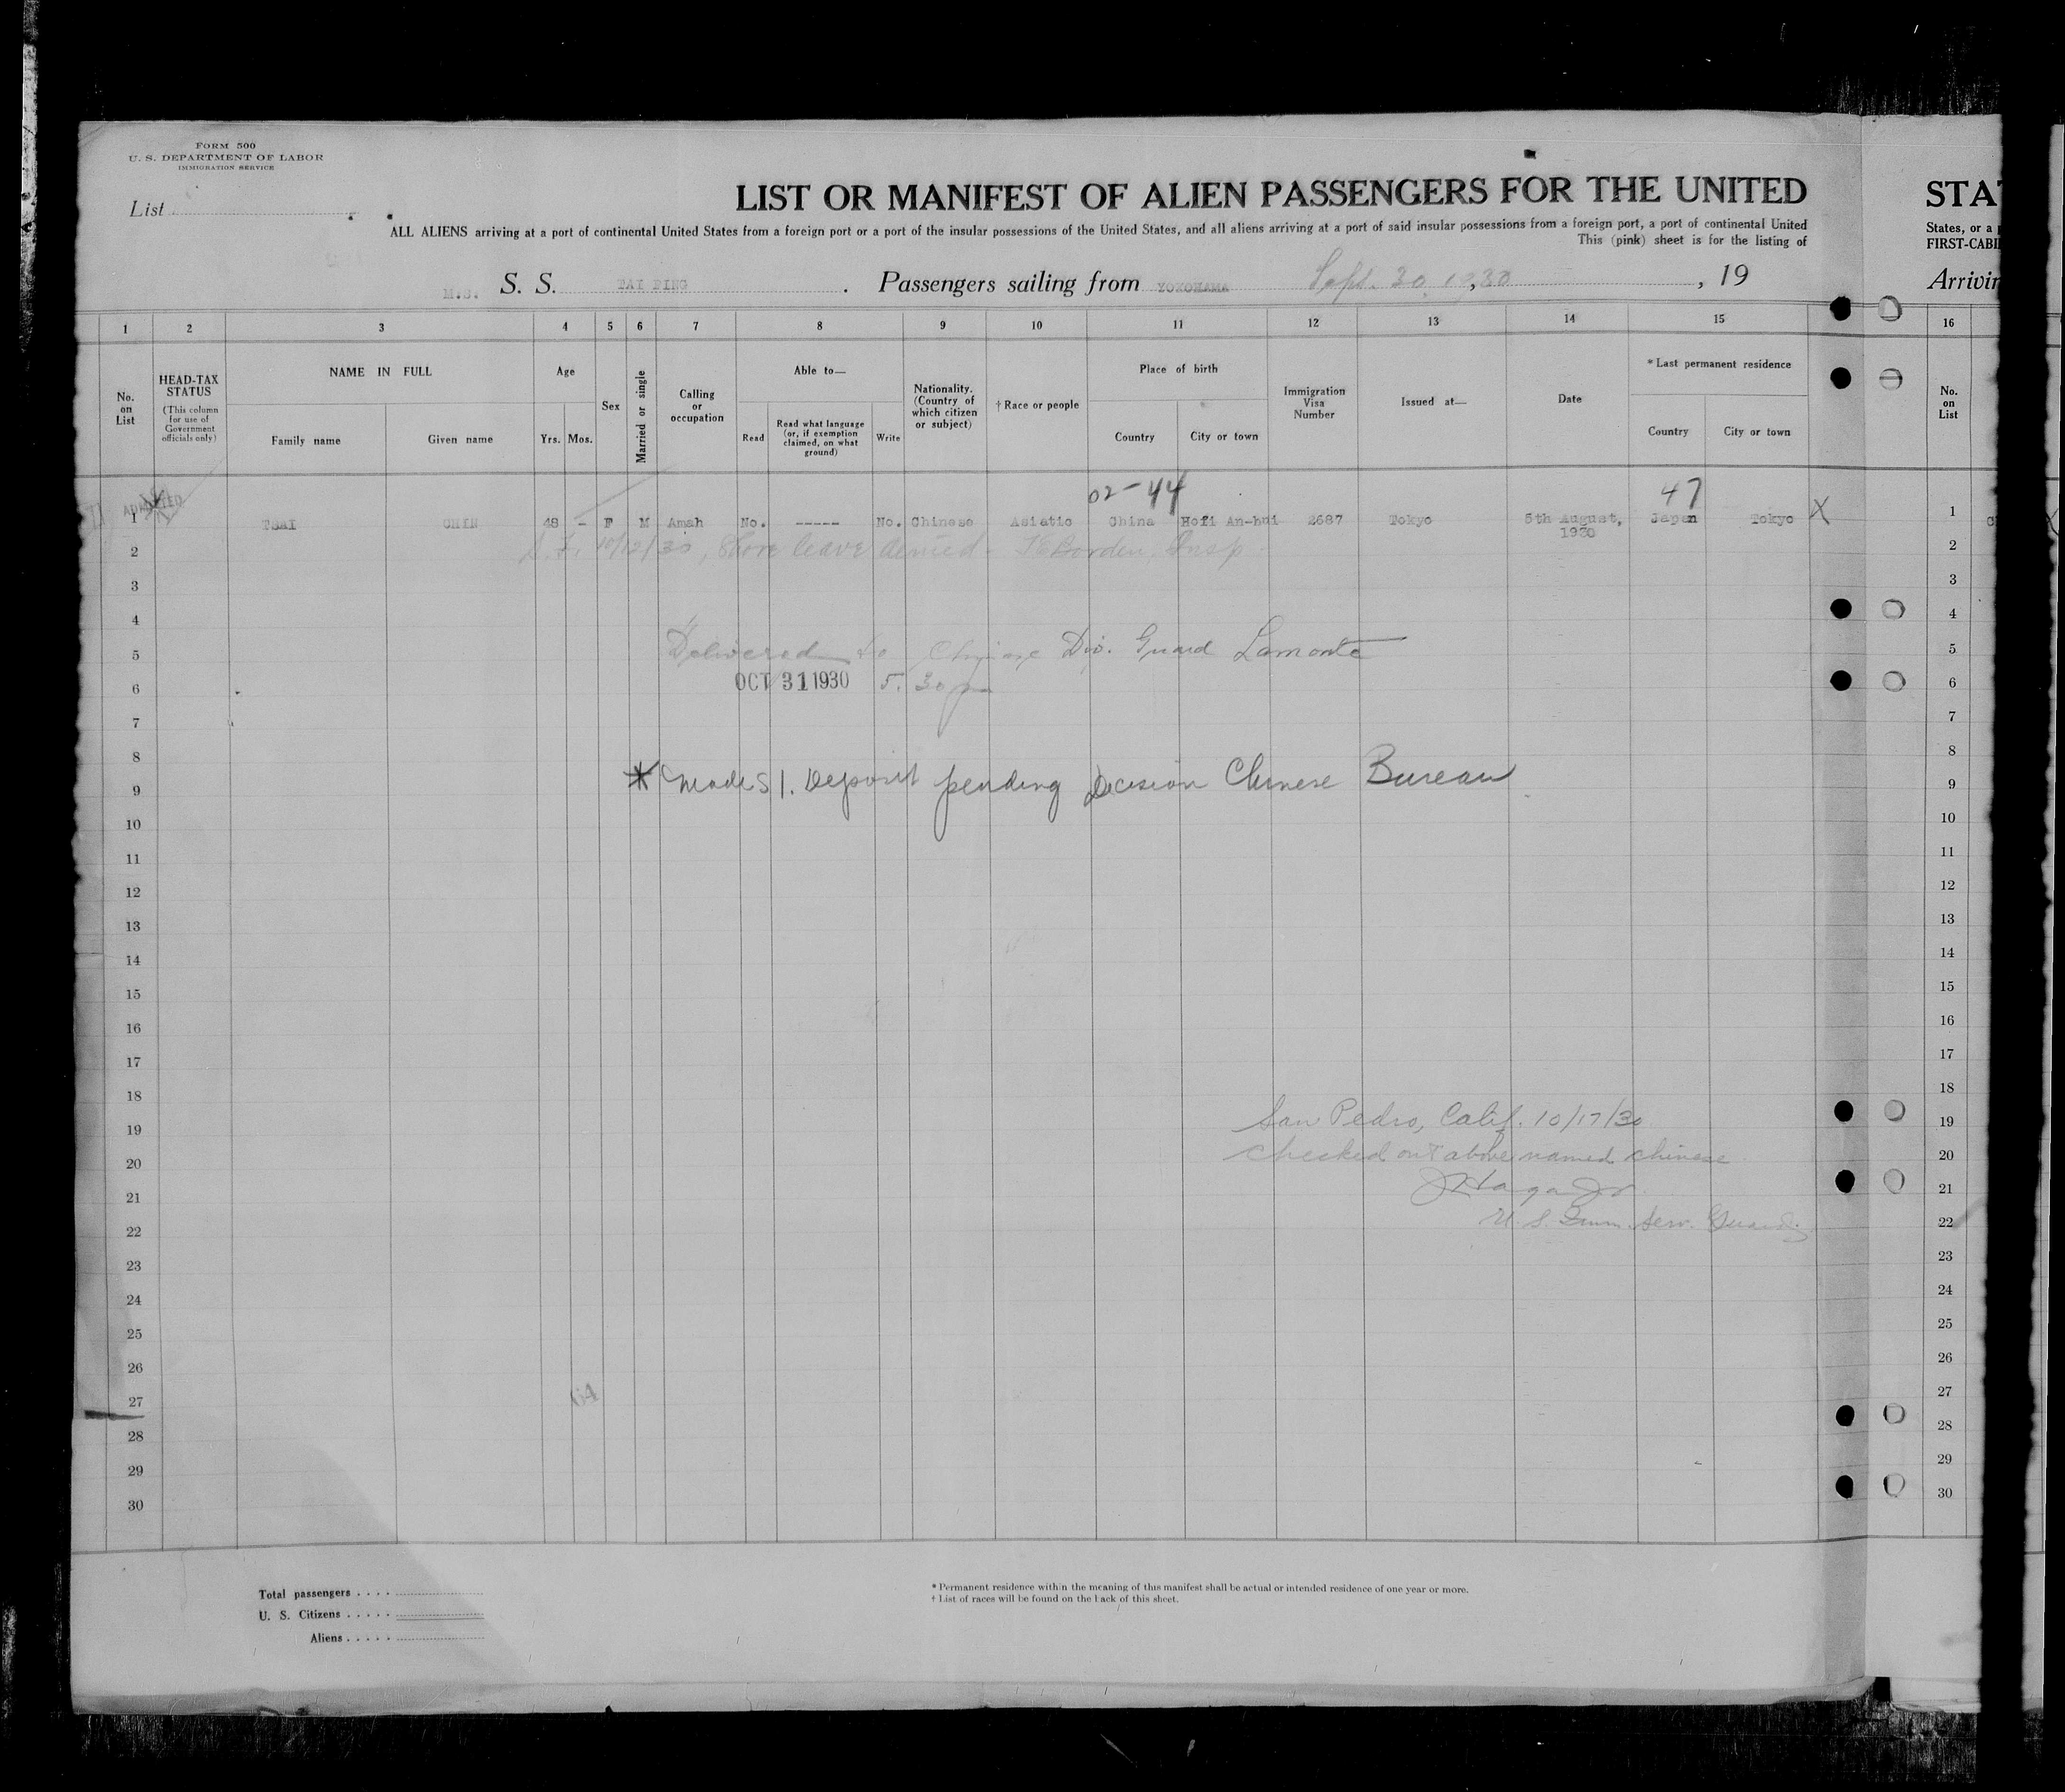 FORM 500
U. S. DEPARTMENT OF LABOR
IMMIGRATION SERVICE
List
LIST OR MANIFEST OF ALIEN PASSENGERS FOR THE UNITED
ALL ALIENS arriving at a port of continental United States from a foreign port or a port of the insular possessions of the United States, and all aliens arriving at a port of said insular possessions from a foreign port, a port of continental United
This (pink) sheet is for the listing of
M.S. S. S. TAI PING . Passengers sailing from YOKOHAMA Sept. 30, 1930 , 19
1 2 3 4 5 6 7 8 9 10 11 12 13 14 15
No. on List
HEAD-TAX STATUS
(This column for use of Government officials only)
NAME IN FULL
Family name
Given name
Age
Yrs. Mos.
Sex
Married or single
Calling or occupation
Able to—
Read
Read what language (or, if exemption claimed, on what ground)
Write
Nationality. (Country of which citizen or subject)
† Race or people
Place of birth
Country
City or town
Immigration Visa Number
Issued at—
Date
* Last permanent residence
Country
City or town
02-44 47
ADMITTED
1 TSAI CHEN 48 - F M Amah No. ----- No. Chinese Asiatic China Hofi An-hui 2687 Tokyo 5th August, 1930 Japan Tokyo X
2 S.F. 10/12/30, Shore leave denied - Borden, Insp.
3
4
5 Delivered to Chinese Div. Guard Lamonte
6 OCT 31 1930 5.30 pm
7
8
9 * Made S1. Deposit pending Decision Chinese Bureau
10
11
12
13
14
15
16
17
18
19 San Pedro, Calif. 10/17/30
20 Checked out above named Chinese
21
22 U. S. Imm. Serv. Guard
23
24
25
26
27 64
28
29
30
Total passengers . . . .
U. S. Citizens . . . . .
Aliens . . . . .
* Permanent residence within the meaning of this manifest shall be actual or intended residence of one year or more.
† List of races will be found on the back of this sheet.
STA
States, or a
FIRST-CABI
Arrivin
16
No. on List
1
2
3
4
5
6
7
8
9
10
11
12
13
14
15
16
17
18
19
20
21
22
23
24
25
26
27
28
29
30